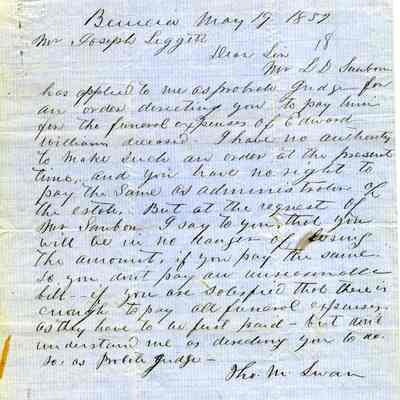 Benicia May 19 1859
Mr Joseph Leggett
Dear Sir
Mr L D Sanborn
has applied to me as probate judge for
an order directing you to pay him
for the funeral expenses of Edward
Williams deceased. I have no authority
to make such an order at the present
time, and you have no right to
pay the same as administrator of
the estate. But at the request of
Mr Sanborn I say to you, that you
will be in no danger of losing
the amount, if you pay the same
so you dont pay an unreasonable
bill -- if you are satisfied that there is
enough to pay all funeral expenses,
as they have to be first paid - but dont
understand me as directing you to do
so, as Probate judge -
Tho. M Swan